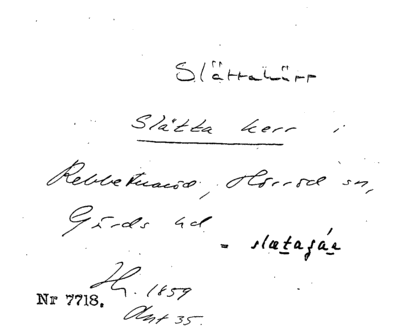 Slättakärr
Slätta kerr i
Rebbetuaröd, Hörröd sn,
Gärds hd
= slätagár
Hy. 1859
Nr 7718.
Ant 35.